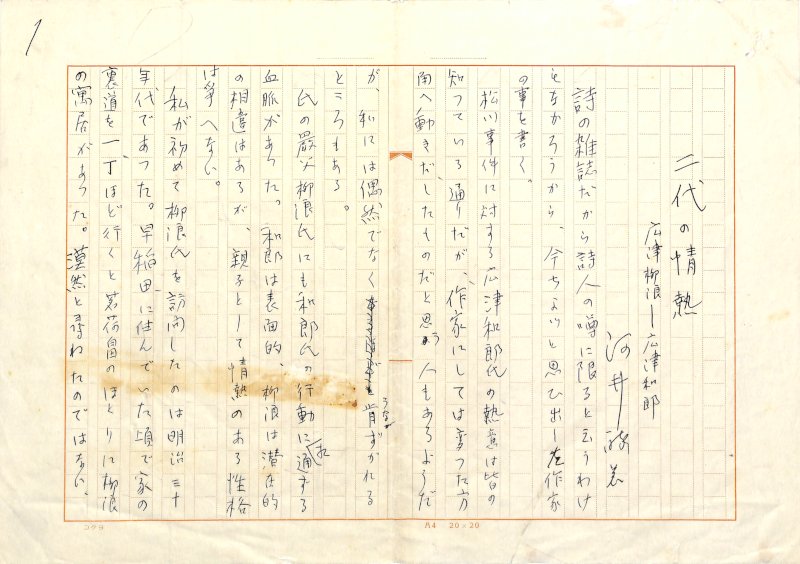 1
二代の情熱
広津柳浪ー広津和郎
河井酔茗
詩の雑誌だから詩人の噂に限ると云うわけ
もなかろうから、今ちょっと思ひ出した作家
の事を書く。
松川事件に対する広津和郎氏の熱意は皆の
知つている通りだが、作家にしては変つた方
面へ動きだしたものだと思う人もあるようだ
が、私には偶然でなく肯ずかれる
うなづ
ところもある。
氏の厳父柳浪氏にも和郎氏の行動に通ずる
血脈があつた。和郎は表面的、柳浪は潜在的
の相違はあるが、親子として情熱のある性格
は争へない。
私が初めて柳浪氏を訪問したのは明治三十
年代であつた。早稲田に住んでいた頃で家の
裏道を一丁ほど行くと茗荷畠のほとりに柳浪
の寓居があつた。漠然と尋ねたのではない、
コクヨ
A4 20×20